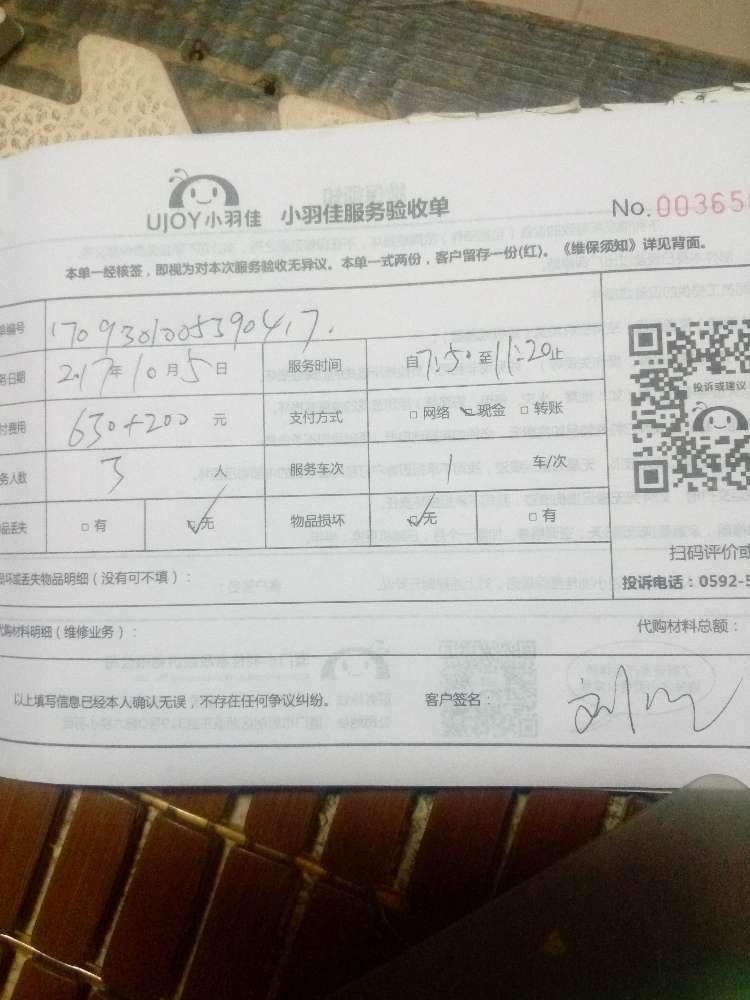 UJOY小羽佳 小羽佳服务验收单 No.00365
本单一经核签，即视为对本次服务验收无异议。本单一式两份，客户留存一份(红)。《维保须知》详见背面。
单编号 1709301005390417.
务日期 2017年10月5日 服务时间 自7:50至11:20止
付费用 630+200 元 支付方式 □网络 □现金 □转账
务人数 3 人 服务车次 1 车/次
品丢失 □有 □无 物品损坏 □无 □有
投诉或建议
扫码评价或
损坏或丢失物品明细（没有可不填）： 投诉电话：0592-5
代购材料明细（维修业务）： 代购材料总额：
以上填写信息已经本人确认无误，不存在任何争议纠纷。 客户签名： 刘